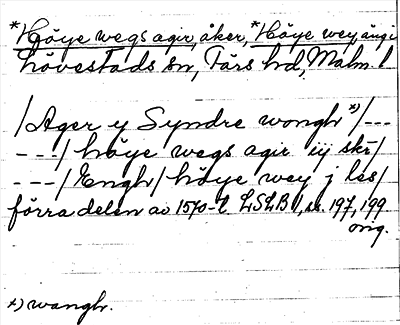 *Höye wegs agir, åker, *Höye wey ängi
Hövestads sn, Färs hd, Malm. l
/Ager y Syndre wongh *)/---
---/ höye wegs agir iij ski/
---/Engh/ höye wey j les/
förra delen av 1570-t. LSLB 1, s. 197, 199
orig.
*) wangh.